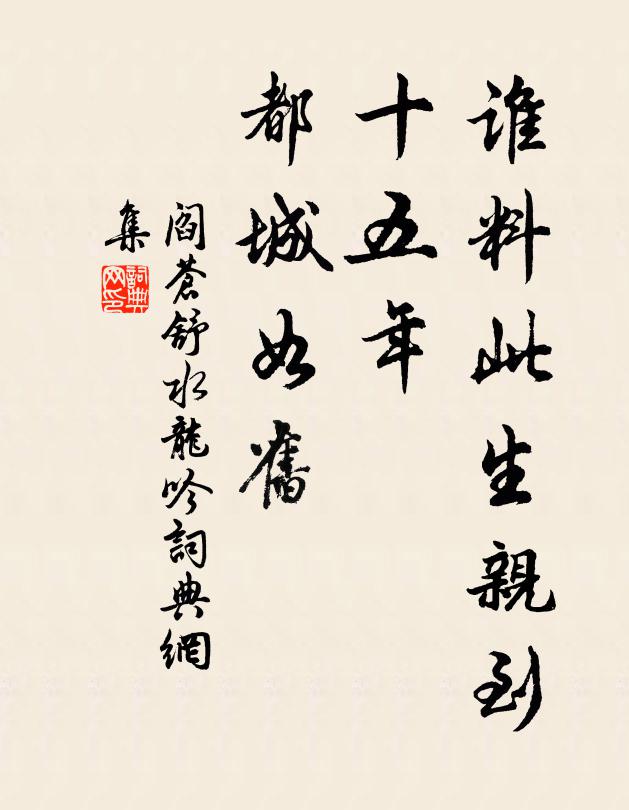 誰料此生親到
十五年
都城如舊
閻蒼舒水龍吟詞典網
集
詞典
网印